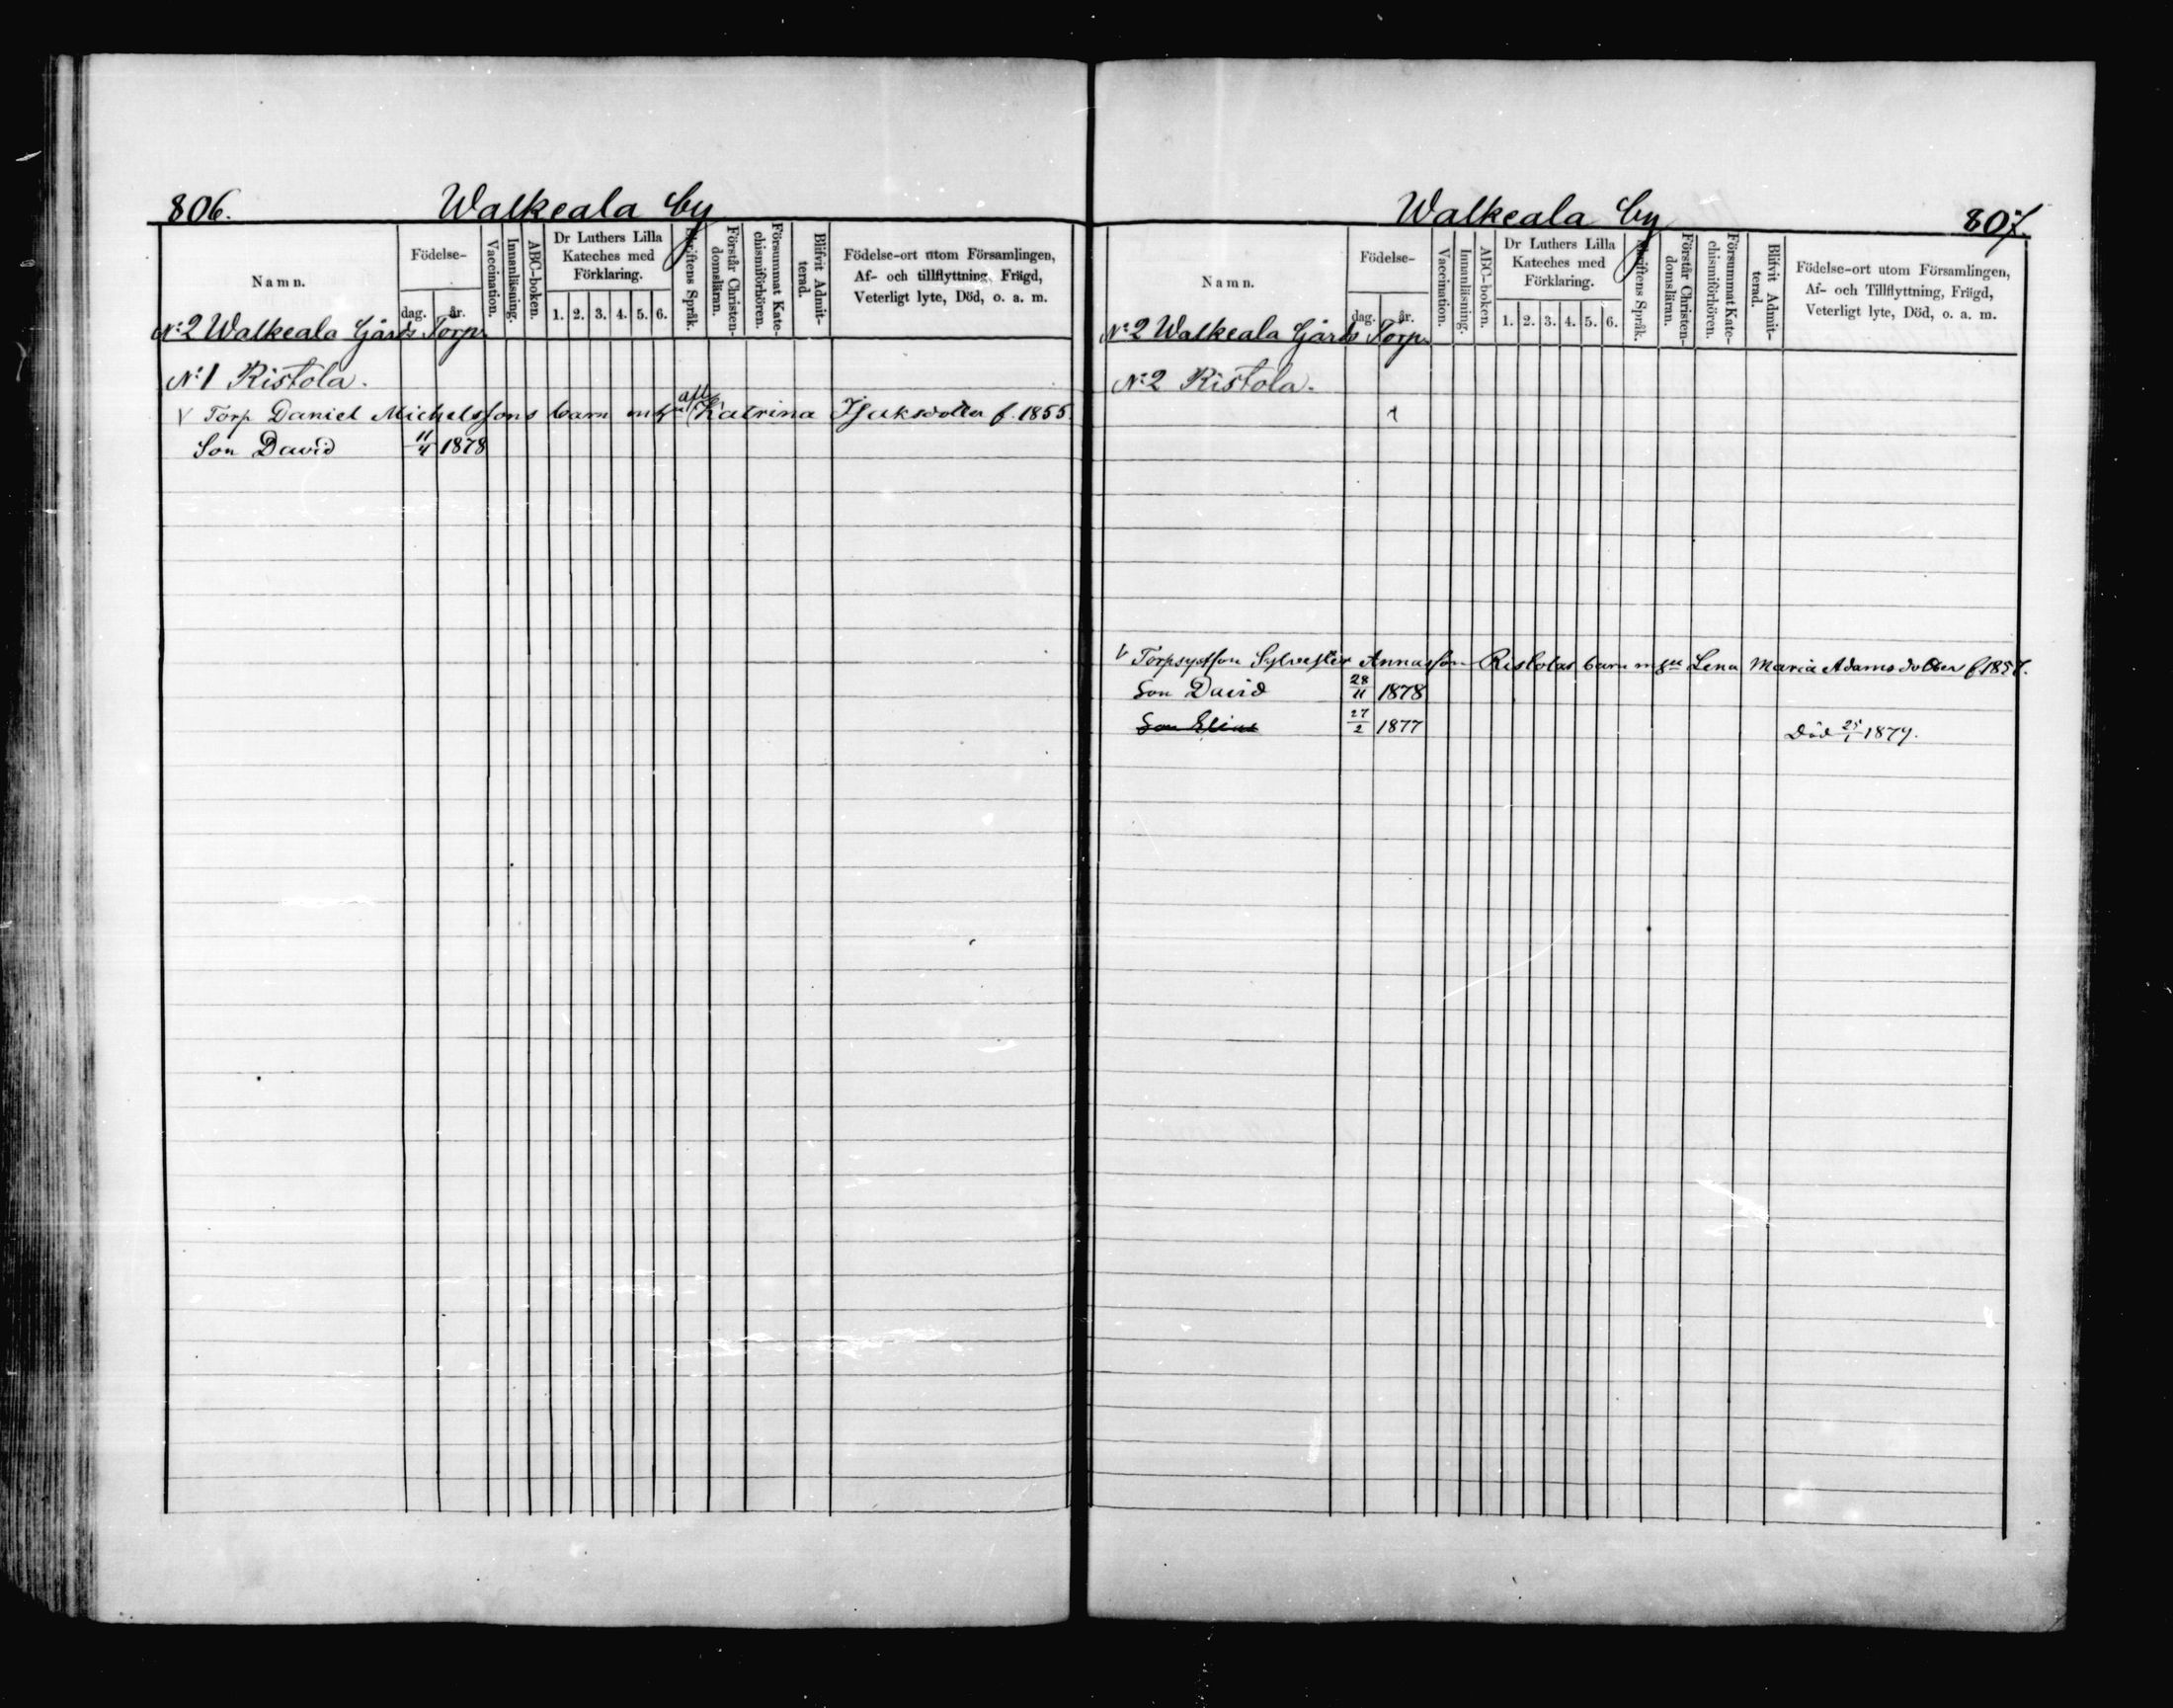 806. Walkeala by
Namn.
Födelse-
dag. år.
Vaccination.
Innanläsning.
ABC-boken.
Dr Luthers Lilla
Kateches med
Förklaring.
1. 2. 3. 4. 5. 6.
Skriftens Språk.
Förstår Christen-
domsläran.
Försummat Kate-
chismiförhören.
Blifvit Admit-
terad.
Födelse-ort utom Församlingen,
Af- och tillflyttning, Frägd,
Veterligt lyte, Död, o. a. m.
No 2 Walkeala Gårds Torp.
No 1 Ristola.
V Torp. Daniel Michelssons barn m h Katrina Isaksdotter f. 1855.
Son David 11/4 1878
Walkeala by 807.
Namn.
Födelse-
dag. år.
Vaccination.
Innanläsning.
ABC-boken.
Dr Luthers Lilla
Kateches med
Förklaring.
1. 2. 3. 4. 5. 6.
Skriftens Språk.
Förstår Christen-
domsläran.
Försummat Kate-
chismiförhören.
Blifvit Admit-
terad.
Födelse-ort utom Församlingen,
Af- och Tillflyttning, Frägd,
Veterligt lyte, Död, o. a. m.
No 2 Walkeala Gårds Torp.
No 2 Ristola.
V Sylvester Annasson Ristolas barn m Lena Maria Adamsdotter
Son David 28/11 1878
Son Elias 27/2 1877 Död 25/1 1879.